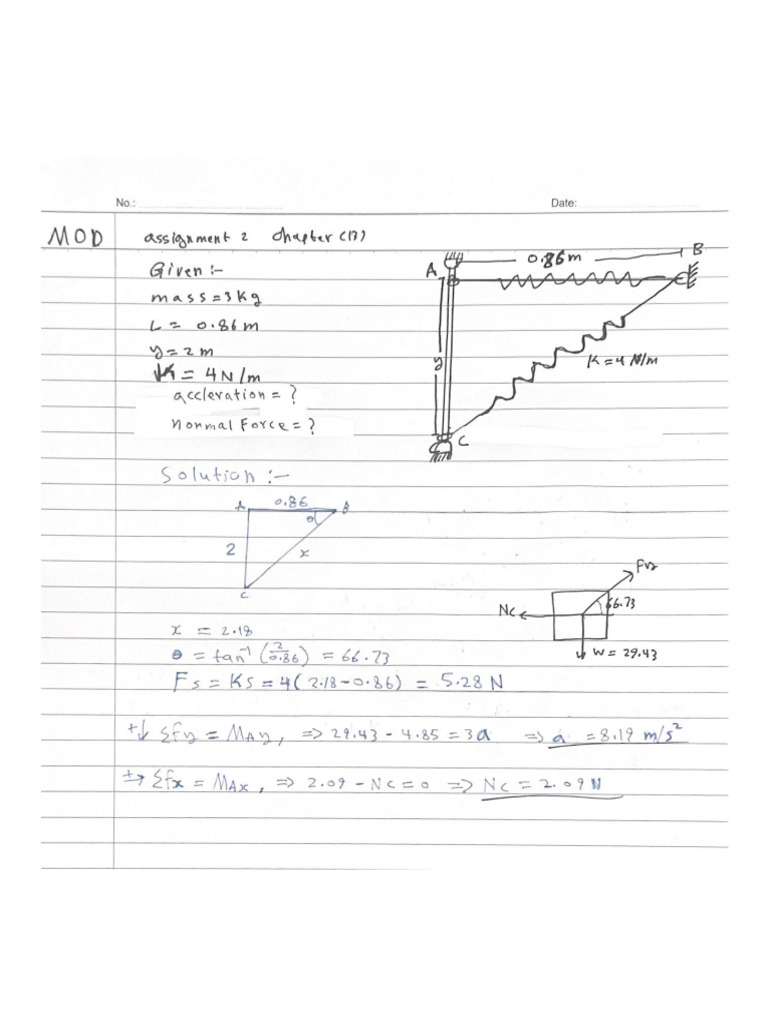 No.: Date:
MOD assignment 2 chapter (13)
Given :-
mass = 3 kg
L = 0.86 m
y = 2 m
K = 4 N/m
accleration = ?
normal Force = ?
A 0.86 m B
y K = 4 N/m
C
Solution :-
A 0.86 B
θ
2 x
C
x = 2.18
θ = tan⁻¹ (2/0.86) = 66.73
Fs = KS = 4 (2.18 - 0.86) = 5.28 N
Nc 66.73
W = 29.43
+↓ Σfy = May, => 29.43 - 4.85 = 3a => a = 8.19 m/s²
+→ Σfx = Max, => 2.09 - Nc = 0 => Nc = 2.09 N